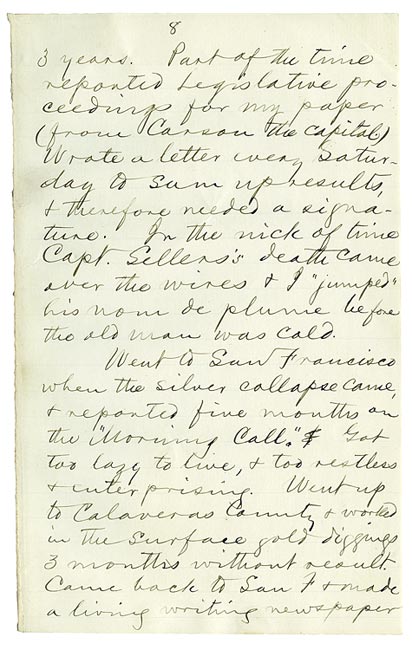 8
3 years. Part of the time
reported Legislative pro-
ceedings for my paper
(from Carson the capital)
Wrote a letter every Satur-
day to sum up results,
& therefore needed a signa-
ture. In the nick of time
Capt. Sellers's death came
over the wires & I "jumped"
his nom de plume before
the old man was cold.
Went to San Francisco
when the silver collapse came,
& reported five months on
the "Morning Call." & Got
too lazy to live, & too restless
& enterprising. Went up
to Calaveras County & worked
in the surface gold diggings
3 months without result.
Came back to San F & made
a living writing newspaper